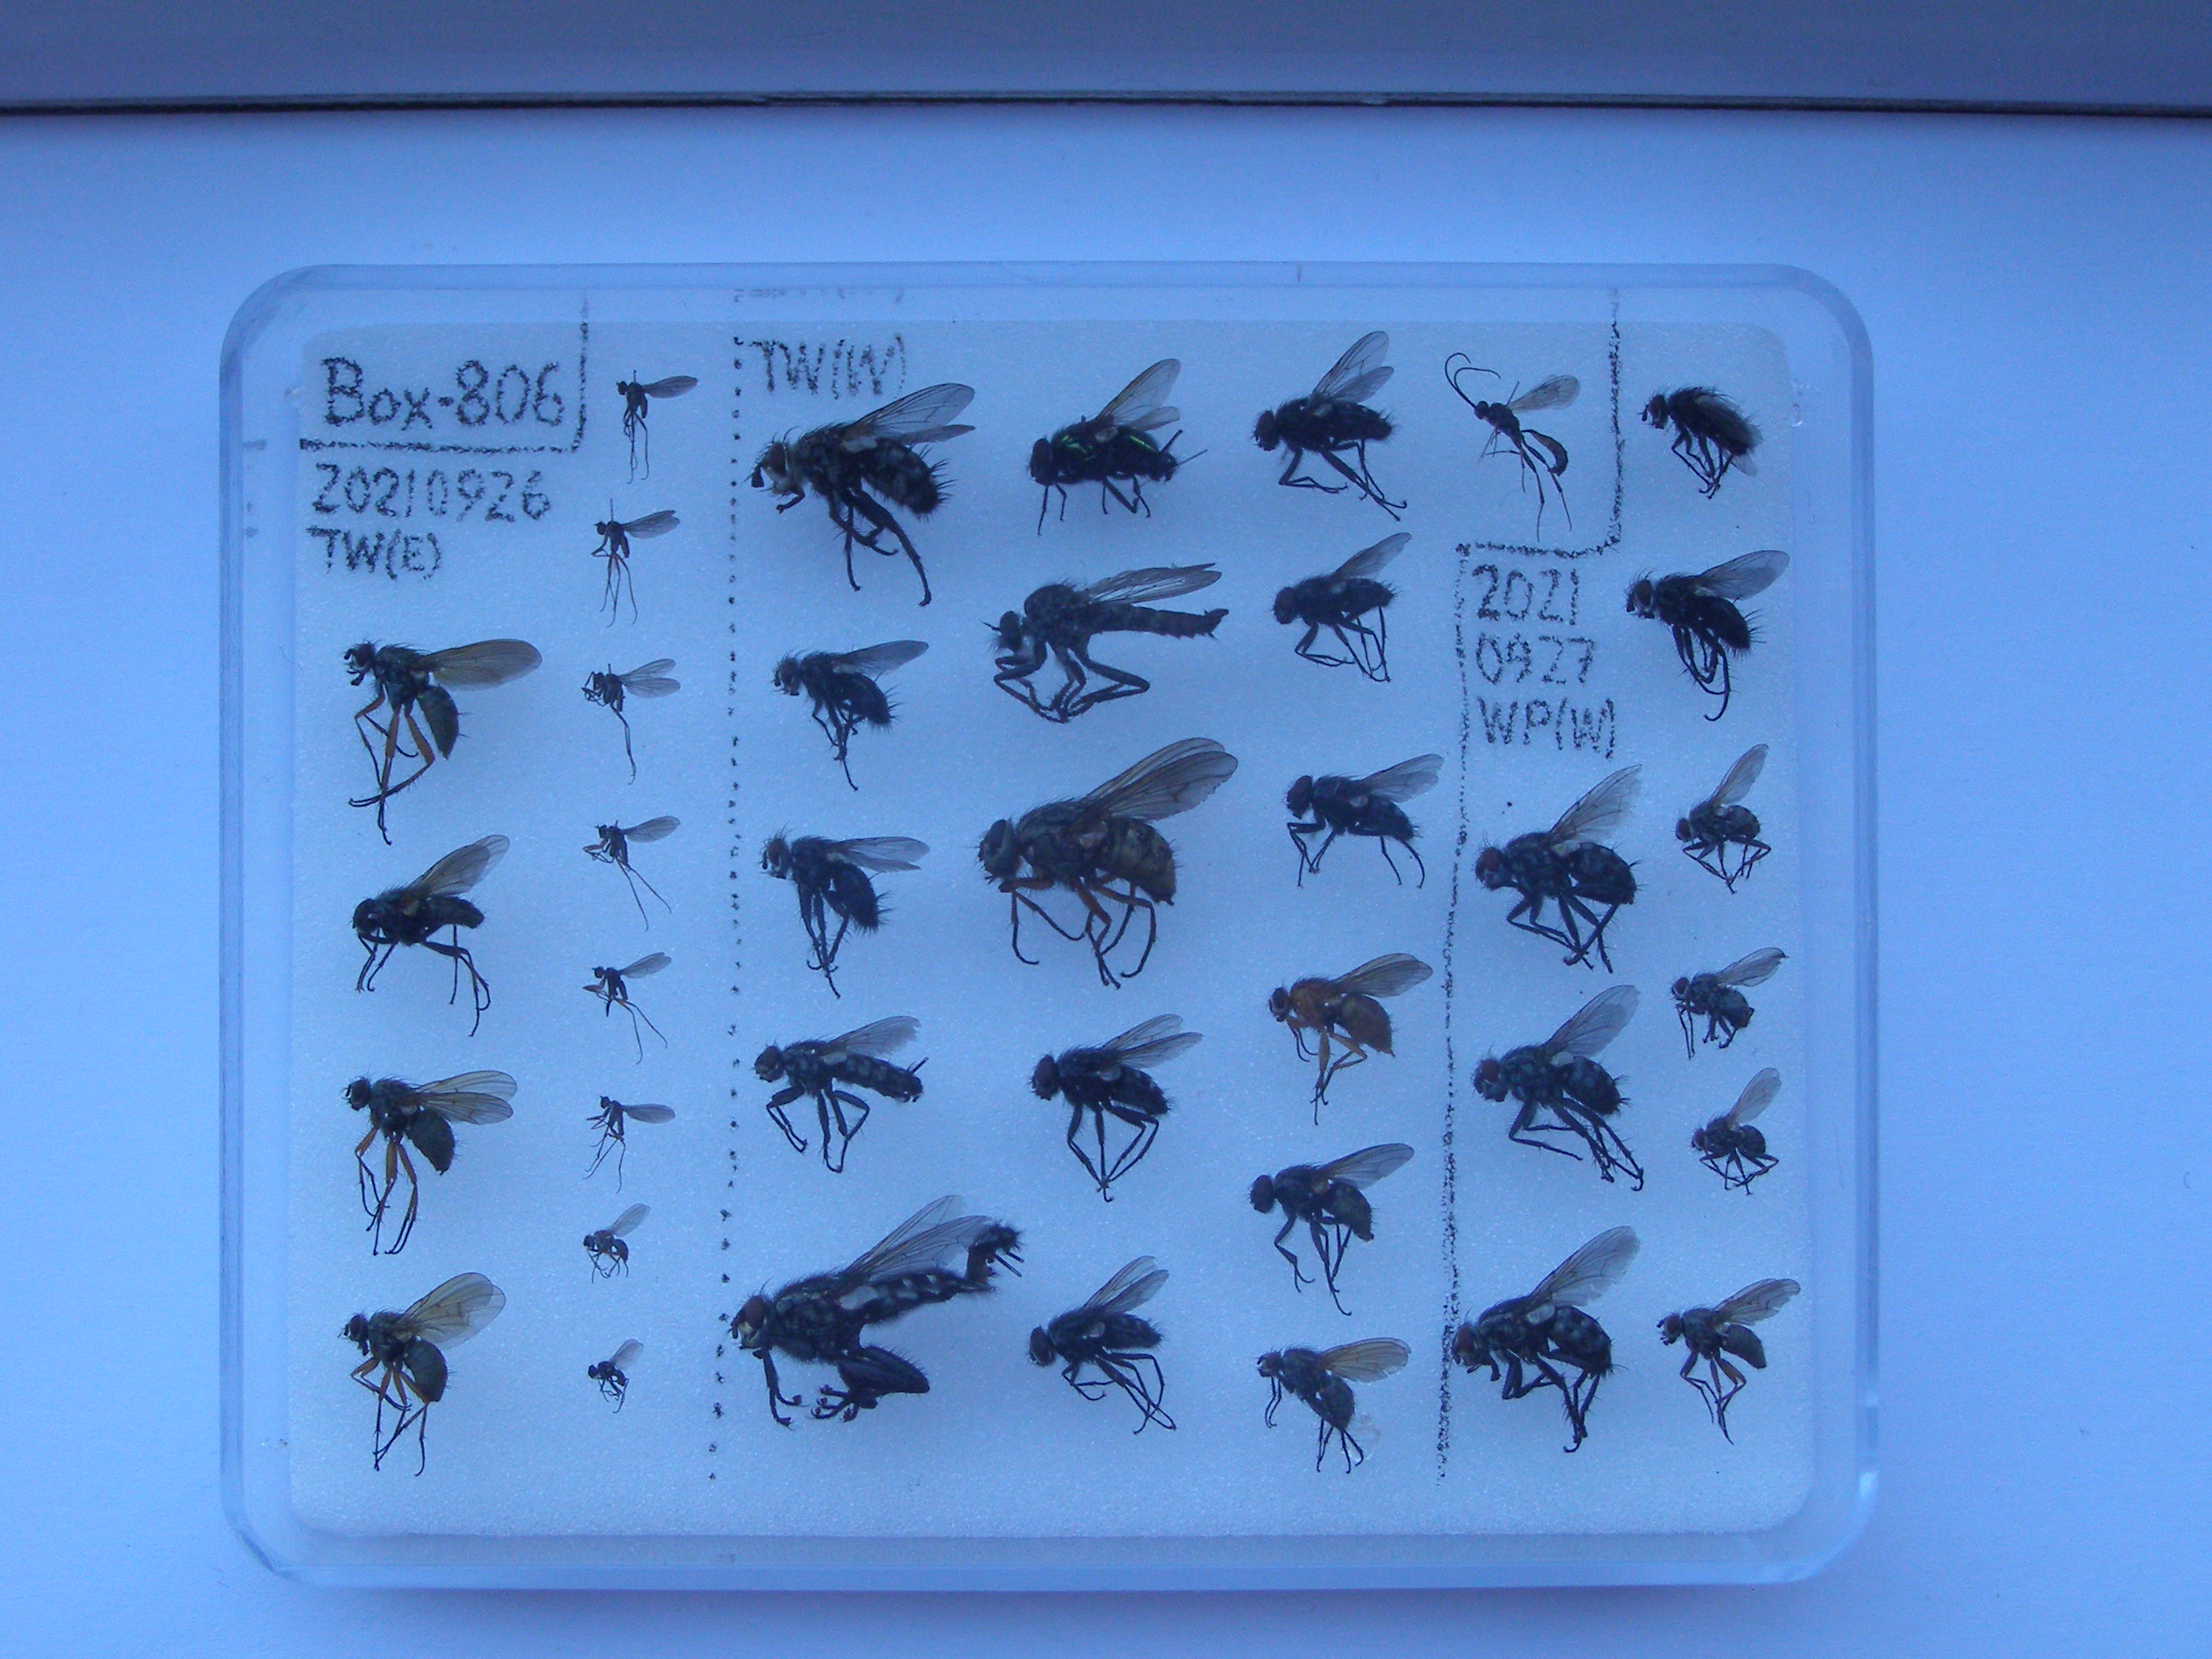 Box-806
20210926
TW(E)
TW(W)
2021
0927
WP(W)